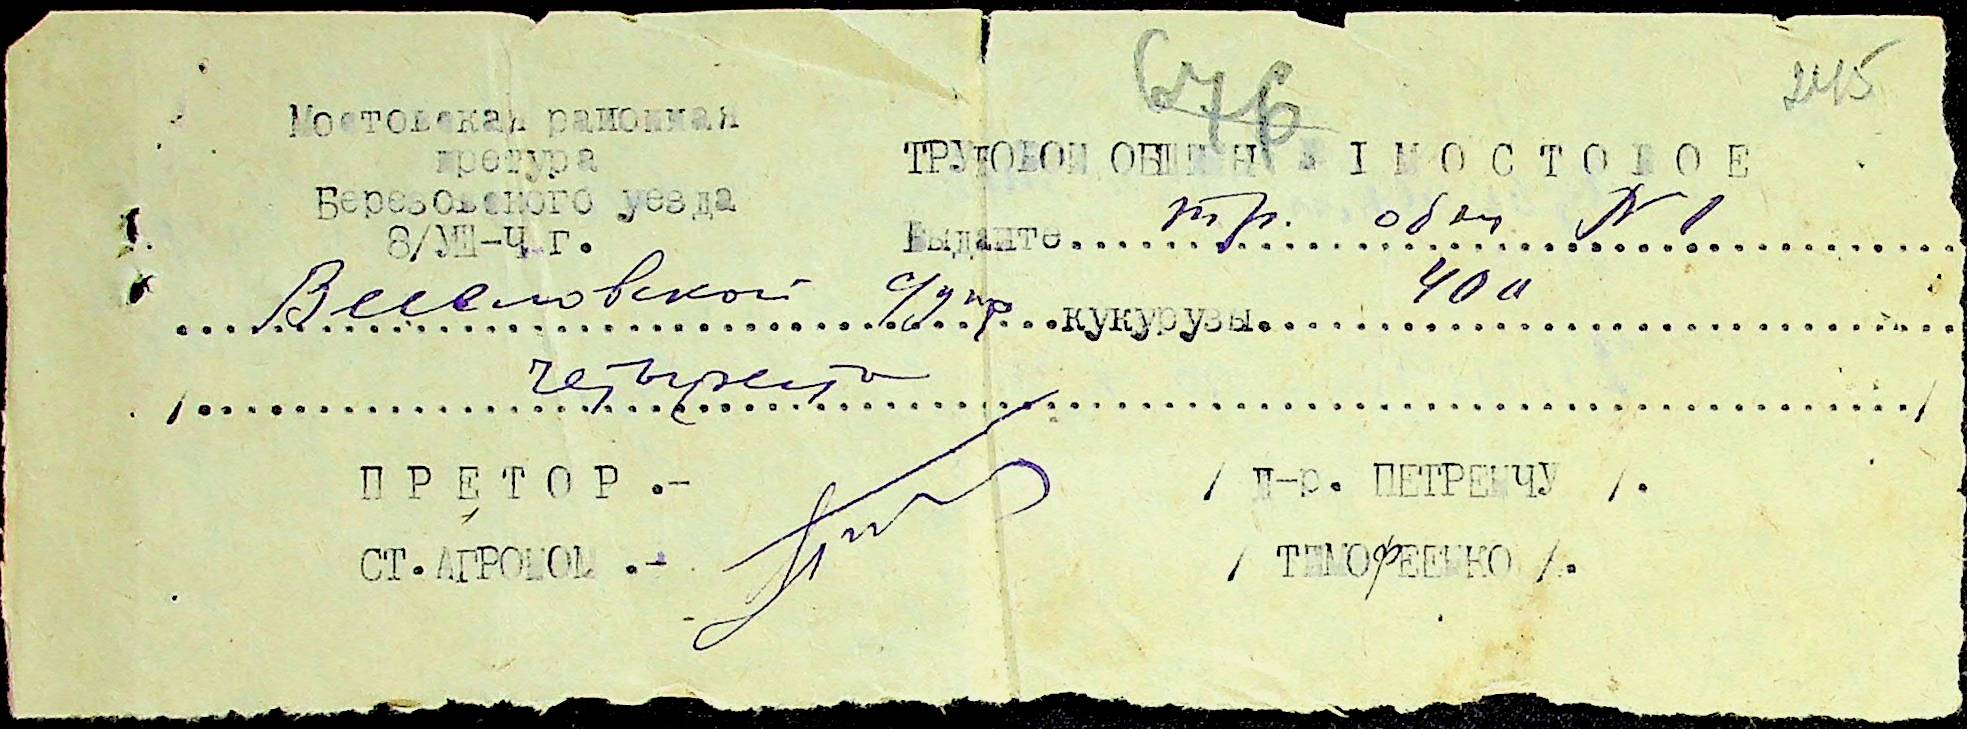 676
245
Мостовская районная
претура
Березовского уезда
8/УШ-4 г.
ТРУДОВОЙ ОБЩИН № I М О С Т О В О Е
Выдайте.....тр. общ № 1
Веселовской с/упр кукурузы 400
/ четыреста /
П Р Е Т О Р .- / д-р. ПЕТРЕНЧУ /.
СТ.АГРОНОМ .- / ТИМОФЕЕНКО /.